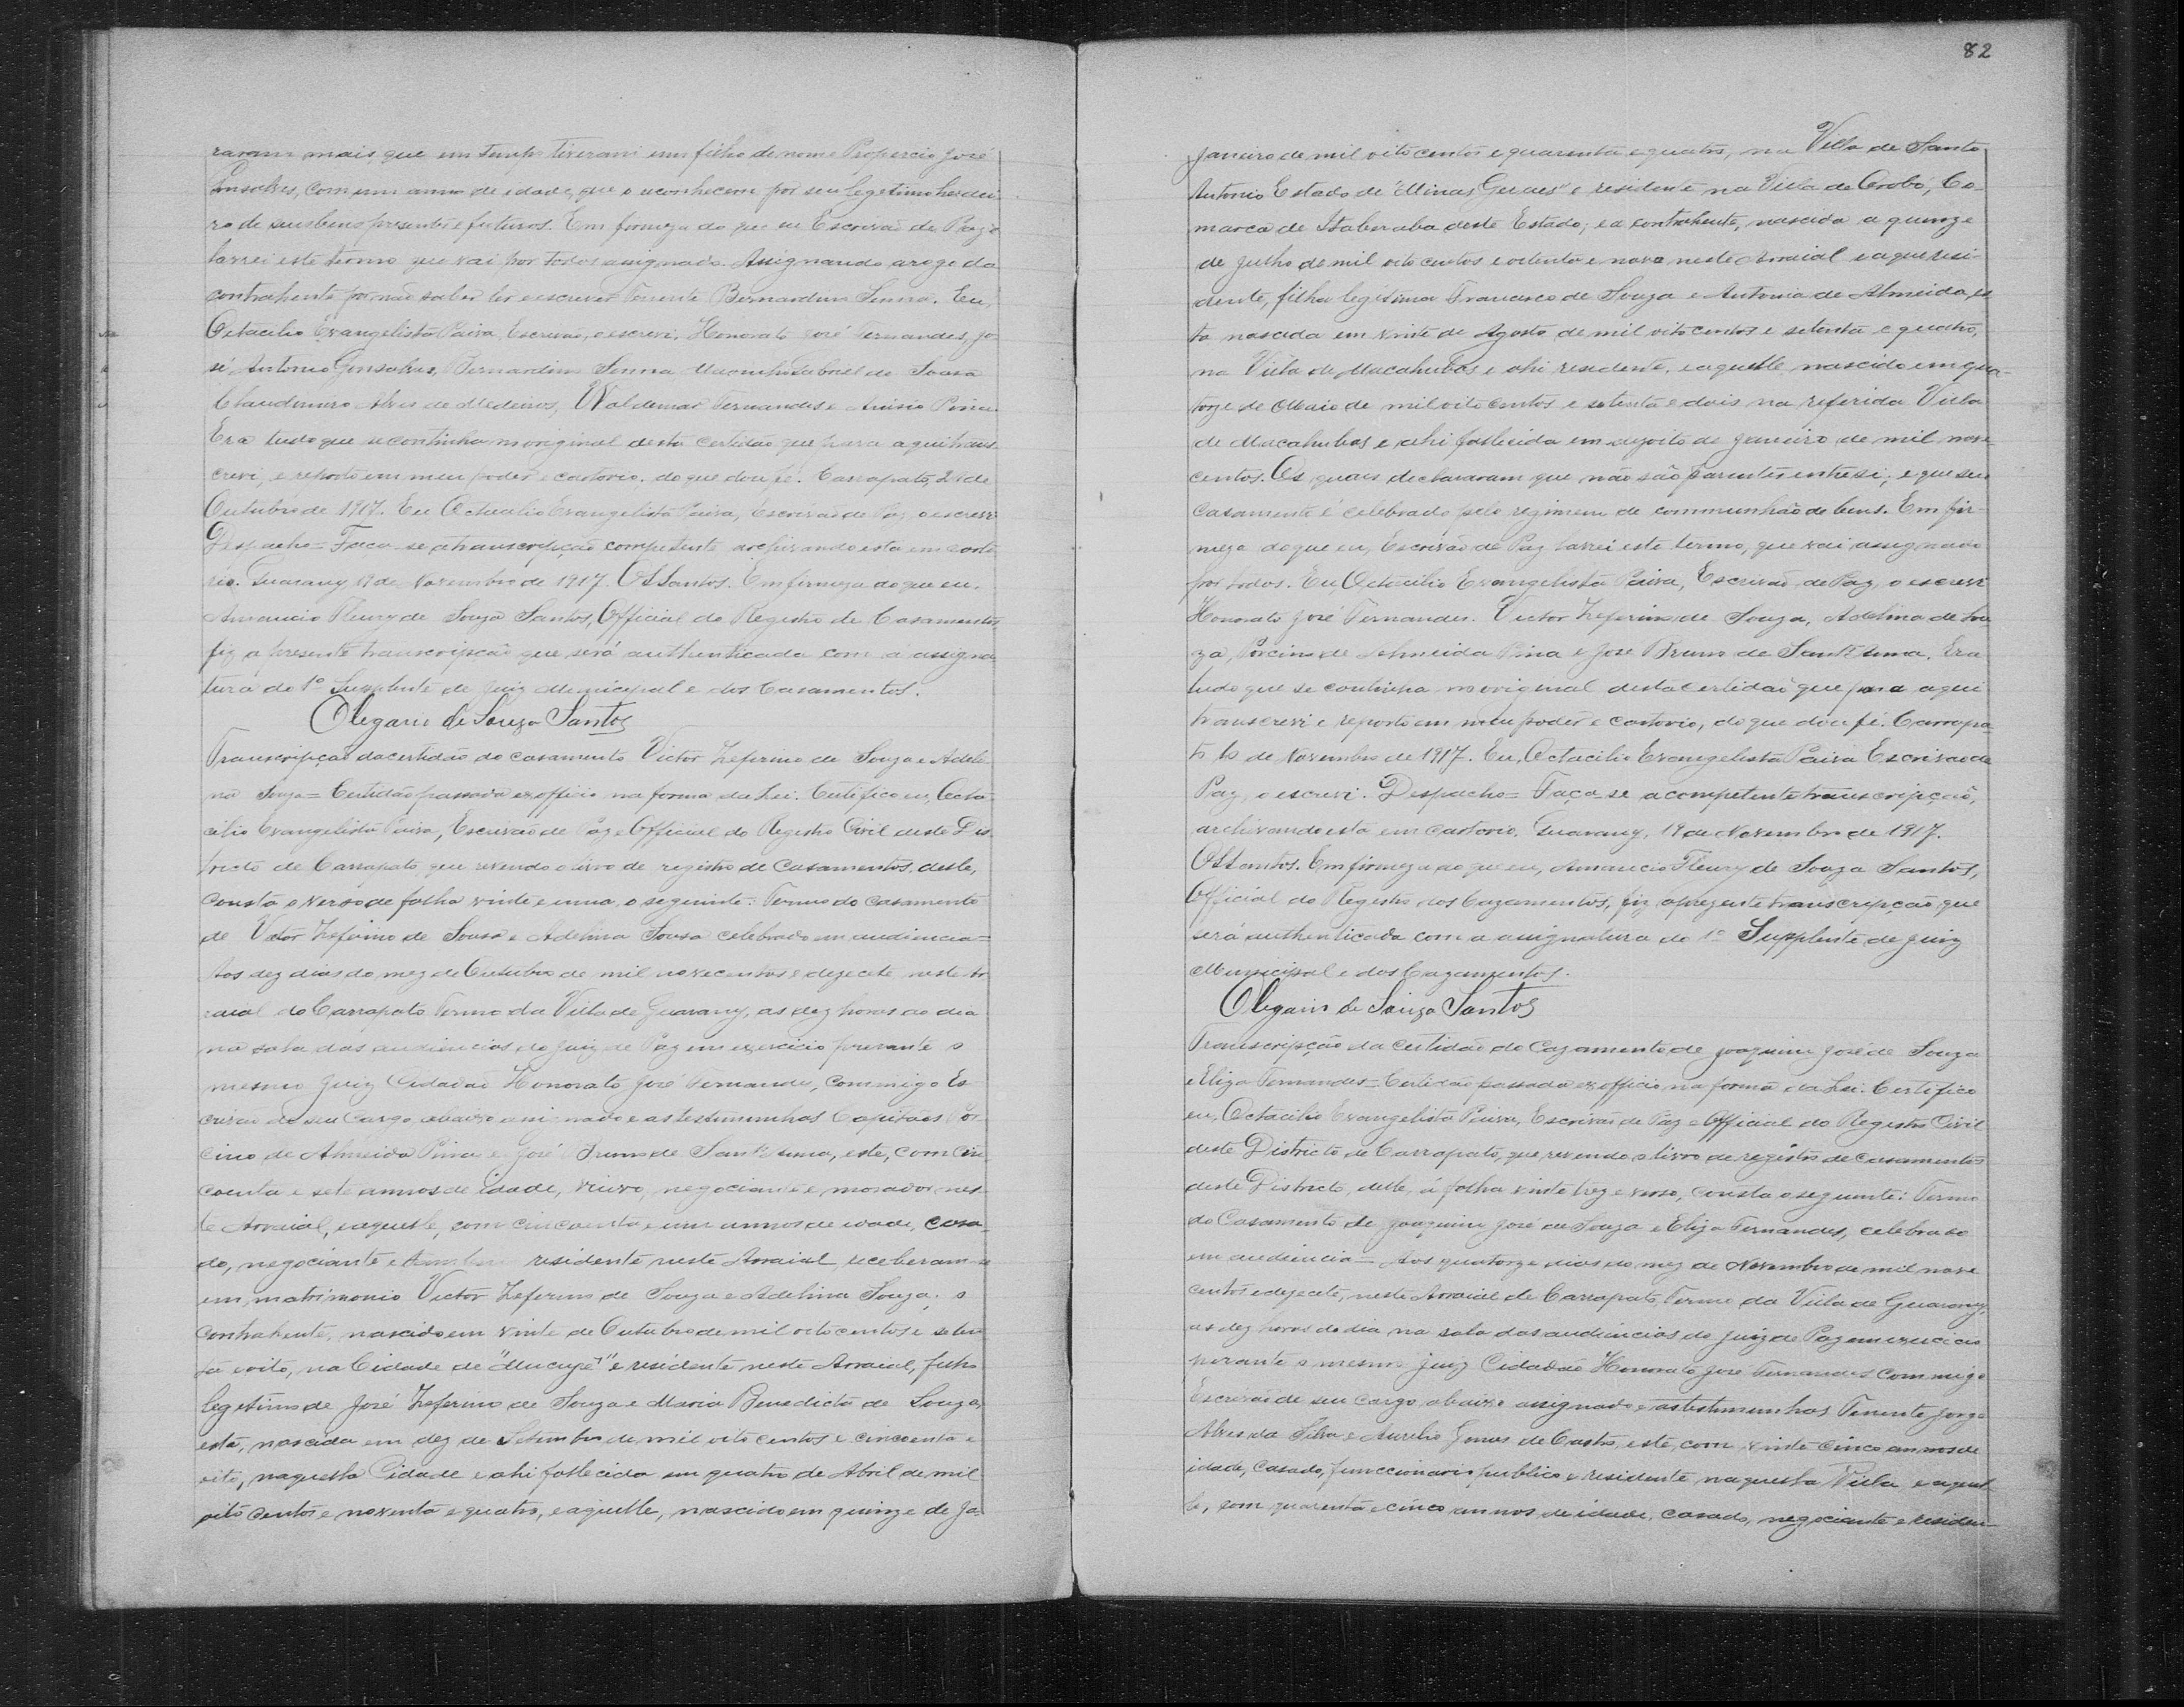 raram mais que em tempo tiveram um filho de nome Propercio José
Gonsalves, com um anno de idade, que o reconhecem por seu legetimo herdei-
ro de seus bens presentes e futuros. Em firmeza do que eu Escrivão de Paz
lavrei este termo que vai por todos assignado. Assignando a rogo da
contrahente por não saber ler e escrever Tenente Bernardino Senna. Eu,
Octacilio Evangelista Paiva, Escrivão, o escrevi. Honorato José Fernandes, Jo
sé Antonio Gonsalves, Bernardino Senna Gabriel de Sousa
Claudimiro Alves de Medeiros, Waldemar Fernandes e Anisio Pina.
Era tudo que se continha no original desta certidão que para aqui trans-
crevi, e reporto em meu poder e cartorio, do que dou fé. Carrapato, de
Outubro de 1917. Eu Octacilio Evangelista Paiva, Escrivão de Paz, o escrevi
Despacho = Faça-se a transcripção competente archivando esta em carto
rio. Guarany, 19 de Novembro de 1917. OSSantos. Em firmeza do que eu,
Amancio Fleury de Souza Santos, Official do Registro de Casamentos,
fiz a presente transcripção que será authenticada com a assigna
tura do 1º Supplente de Juiz Municipal e dos Casamentos.
Olegario de Souza Santos
Transcripção da certidão do casamento Victor Zeferino de Souza e Adeli
na Souza = Certidão passada ex officio na forma da Lei. Certifico eu, Octa
cilio Evangelista Paiva, Escrivão de Paz e Official do Registro Civil deste Dis-
tricto de Carrapato que revendo o livro de registro de casamentos, delle,
consta o verso de folha vinte e uma, o seguinte: Termo do casamento
de Victor Zeferino de Sousa e Adelina Sousa celebrado em audiencia =
Aos dez dias do mez de Outubro de mil novecentos e dezecete neste Ar
raial do Carrapato Termo da Villa de Guarany, as dez horas do dia
na sala das audiencias do Juiz de Paz em exercicio perante o
mesmo Juiz Cidadão Honorato José Fernandes, commigo Es
crivão do seu cargo abaixo assignado e as testimunhas Capitães Por
cino de Almeida Pina e José Bruno de Sant'Anna, este, com cin
coenta e sete annos de idade, viuvo, negociante e morador nes-
te Arraial, e aquelle, com cincoenta e um annos de idade, casa-
do, negociante e residente neste Arraial, receberam-se
em matrimonio Victor Zeferino de Souza e Adelina Souza; o
contrahente, nascido em vinte de Outubro de mil oito centos e seten
ta e oito, na Cidade de "Mucugê" e residente neste Arraial, filho
legetimo de José Zeferino de Souza e Maria Benedicta de Souza,
esta, nascida em dez de Setembro de mil oito centos e cincoenta e
oito, naquella Cidade e ahi fallecida em quatro de Abril de mil
oito centos e noventa e quatro, e aquelle, nascido em quinze de Ja-
82
Janeiro de mil oito centos e quarenta e quatro, na Villa de Santo
Antonio Estado de "Minas Geraes" e residente na Villa de Orobó, Co-
marca de Itaberaba deste Estado; e a contrahente, nascida a quinze
de Julho de mil oito centos e oitenta e nove neste Arraial e aqui resi-
dente, filha legitima Francisco de Souza e Antonia de Almeida, es
ta nascida em vinte de Agosto de mil oito centos e setenta e quatro,
na Villa de Macahubas e ahi residente, e aquelle nascido em qua-
torze de Maio de mil oito centos e setenta e dois na referida Villa
de Macahubas e ahi fallecido em dezoito de Janeiro de mil nove
centos. Os quais declararam que não são parentes entre si; e que seu
casamento é celebrado pelo regimem de communhão de bens. Em fir-
meza do que eu, Escrivão de Paz lavrei este termo, que vai assignado
por todos. Eu, Octacilio Evangelista Paiva, Escrivão de Paz, o escrevi
Honorato José Fernandes. Victor Zeferino de Souza, Adelina de Sou
za, Porcino de Almeida Pina e José Bruno de Sant'Anna. Era
tudo que se continha no original desta certidão que para aqui
transcrevi e reporto em meu poder e cartorio, do que dou fé. Carrapa
to de Novembro de 1917. Eu, Octacilio Evangelista Paiva Escrivão de
Paz, o escrevi. Despacho = Faça se a competente transcripção,
archivando esta em cartorio. Guarany, 19 de Novembro de 1917.
OSSantos. Em firmeza do que eu, Amancio Fleury de Souza Santos,
Official do Registro dos Cazamentos, fiz a prezente transcripção que
será authenticada com a assignatura do 1º Supplente de Juiz
Municipal e dos Cazamentos.
Olegario de Souza Santos
Transcripção da certidão do Cazamento de Joaquim José de Souza
e Eliza Fernandes = Certidão passada ex officio na forma da Lei. Certifico
eu, Octacilio Evangelista Paiva, Escrivão de Paz e Official do Registro Civil
deste Districto de Carrapato, que revendo o livro de registro de casamentos
deste Districto, delle, á folha vinte trez e verso, consta o seguinte: Termo
do Casamento de Joaquim José de Souza e Eliza Fernandes, celebrado
em audiencia = Aos quatorze dias do mez de Novembro de mil nove
centos e dezecete, neste Arraial de Carrapato, Termo da Villa de Guarany,
as dez horas do dia na sala das audiencias do Juiz de Paz em exercicio
perante o mesmo Juiz Cidadão Honorato José Fernandes commigo
Escrivão de seu cargo abaixo assignado e as testimunhas Tenente Jorge
Alves da Silva e Aurelio Gomes de Castro, este, com vinte cinco annos de
idade, casado, funccionario publico e residente naquella Villa e aquel
le, com quarenta e cinco annos de idade, casado, negociante e residen-